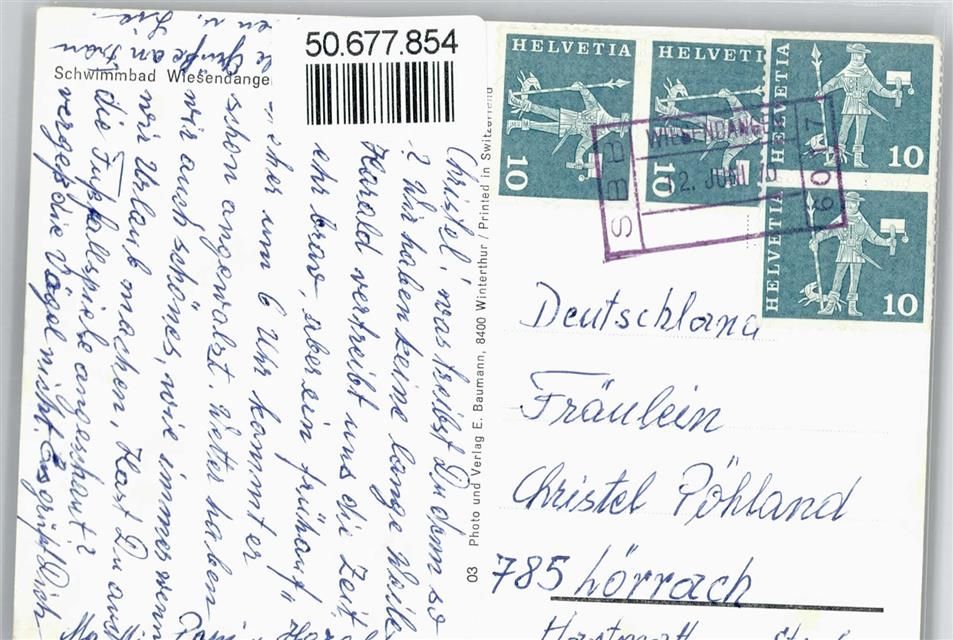 50.677.854
Schwimmbad Wiesendange
Christel, was treibst Du denn so
? Wir haben keine lange Weile
Harald vertreibt uns die Zeit,
sehr brav, aber ein Frühauf
um 6 Uhr kommt er
schon angewalzt. Wetter haben
wir auch schönes, wie immer wenn
wir Urlaub machen. Hast Du auch
die Fußballspiele angeschaut?
vergeß die Vögel nicht. Es grüßt Dich
Grüße an
03 Photo und Verlag E. Baumann, 8400 Winterthur / Printed in Switzerland
HELVETIA
10
HELVETIA
10
HELVETIA
10
HELVETIA
10
SBB
WIESENDANGE
2. JUNI 70
Deutschland
Fräulein
Christel Pöhland
785 Lörrach